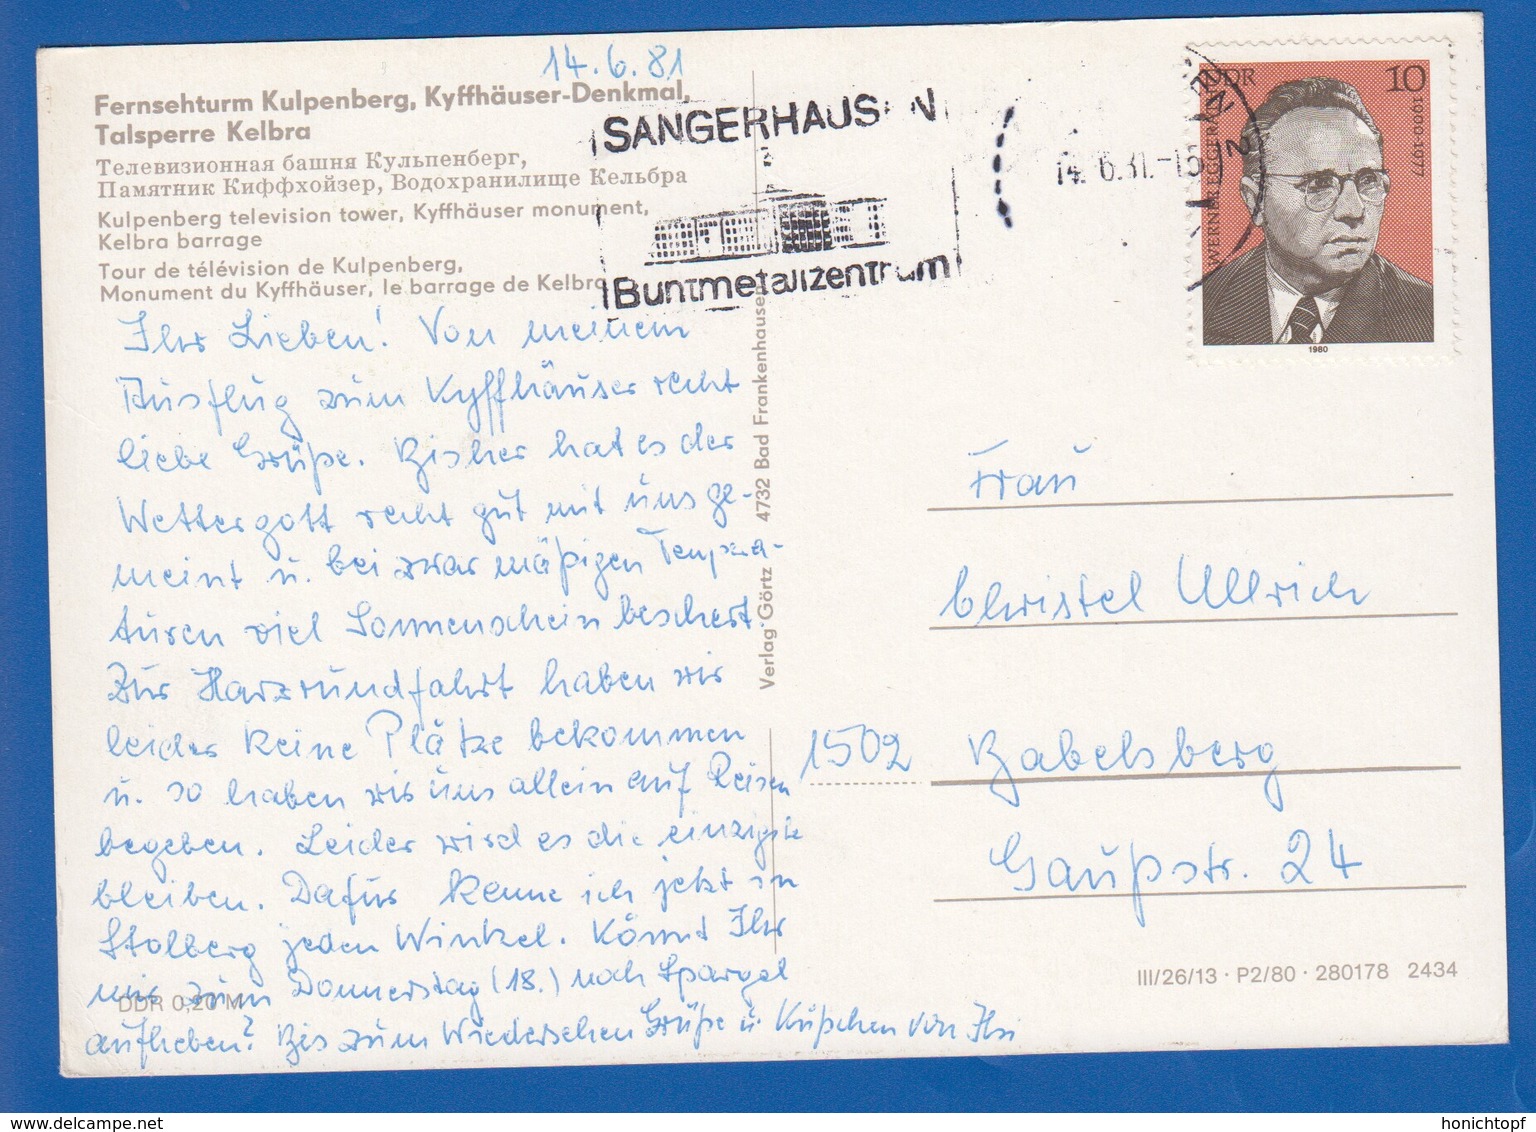 14.6.81
Fernsehturm Kulpenberg, Kyffhäuser-Denkmal,
Talsperre Kelbra
Телевизионная башня Кульпенберг,
Памятник Киффхойзер, Водохранилище Кельбра
Kulpenberg television tower, Kyffhäuser monument,
Kelbra barrage
Tour de télévision de Kulpenberg,
Monument du Kyffhäuser, le barrage de Kelbra
SANGERHAUSEN
Buntmetallzentrum
DDR 10
WERNER EGGERATH
1900-1977
1980
Ihr Lieben! Von meinem
Ausflug zum Kyffhäuser recht
liebe Grüße. Bisher hat es der
Wettergott recht gut mit uns ge-
meint u. bei zwar mäßigen Tempera-
turen viel Sonnenschein beschert.
Zur Harzrundfahrt haben wir
leider keine Plätze bekommen
u. so haben wir uns allein auf Reisen
begeben. Leider wird es die einzigste
bleiben. Dafür kenne ich jetzt in
Stolberg jeden Winkel. Könnt Ihr
mir zum Donnerstag (18.) noch Spargel
aufheben? Bis zum Wiedersehen Grüße u Küßchen von
DDR 0,20 M
Verlag Görtz 4732 Bad Frankenhausen
Frau
Christel Ullrich
1502 Babelsberg
Gaußstr. 24
III/26/13 · P2/80 · 280178 2434
honichtopf